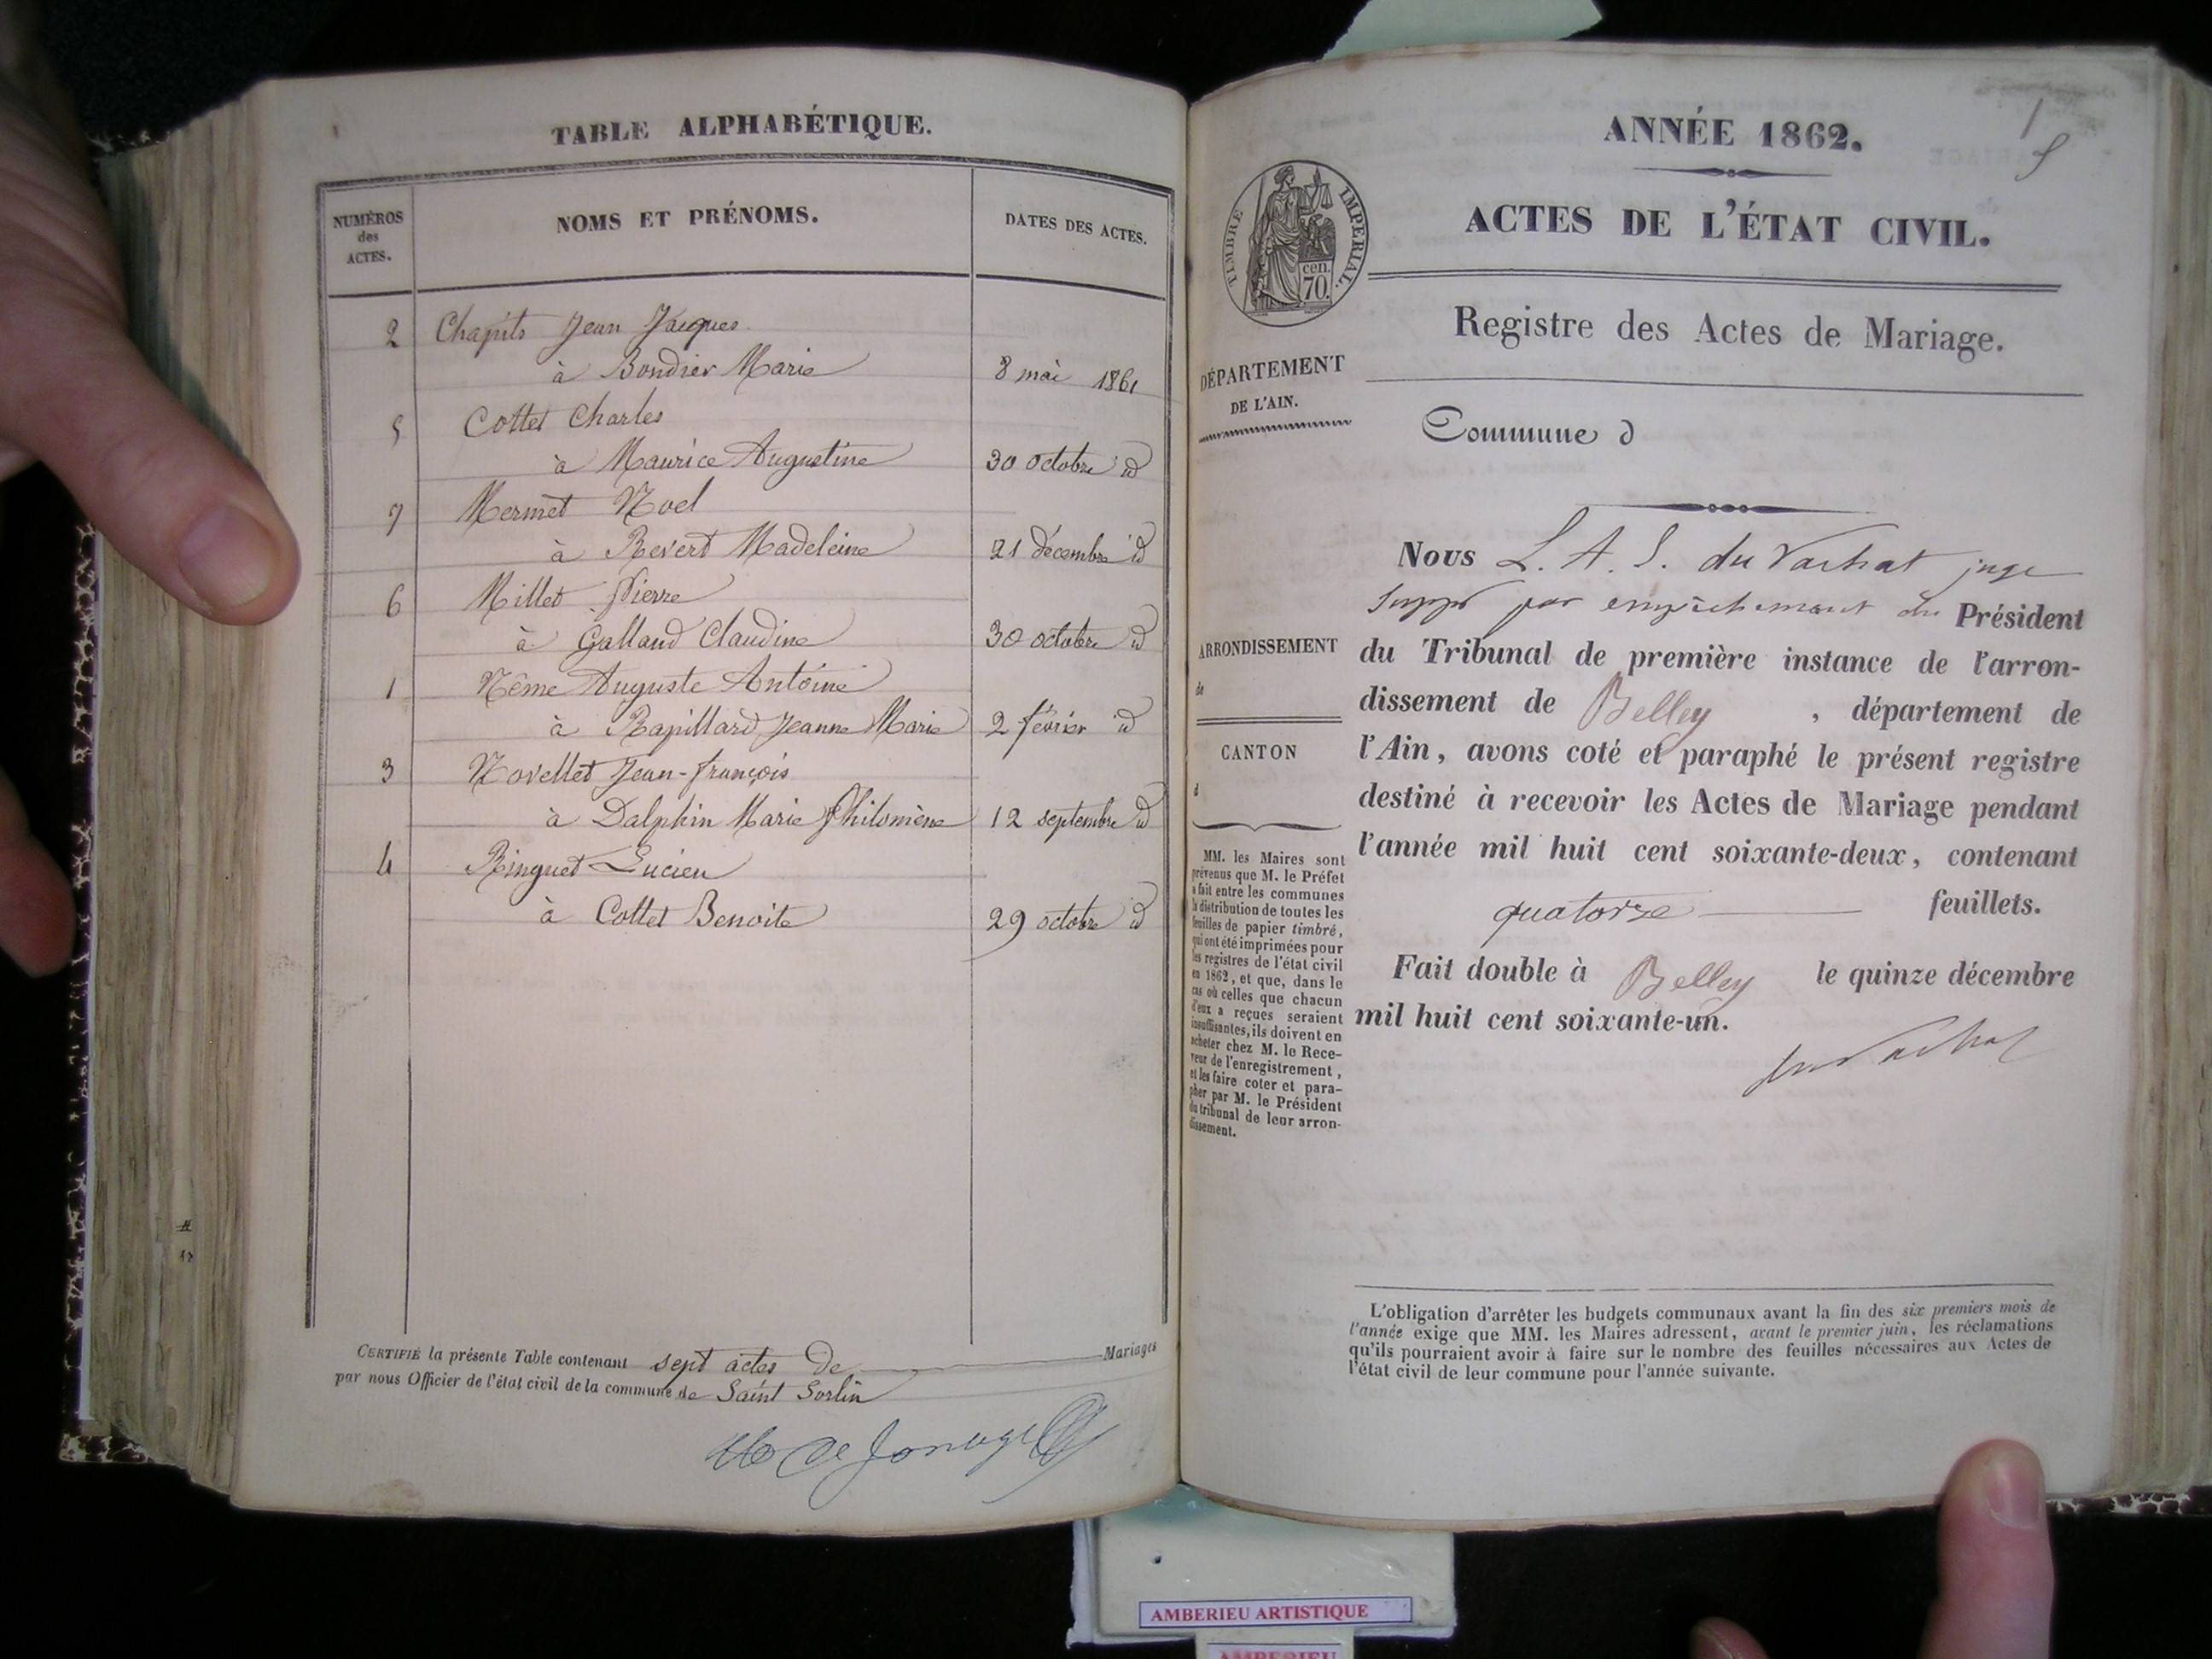 TABLE ALPHABÉTIQUE.
NUMÉROS des ACTES.
NOMS ET PRÉNOMS.
DATES DES ACTES.
2 Chapits Jean Jacques
à Bondier Marie 8 mai 1861
5 Cottet Charles
à Maurice Augustine 30 octobre id
7 Mermet Noel
à Revert Madeleine 21 décembre id
6 Millet Pierre
à Galland Claudine 30 octobre id
1 Nême Auguste Antoine
à Rapillard Jeanne Marie 2 février id
3 Novellet Jean-françois
à Dalphin Marie Philomène 12 septembre id
4 Ringuet Lucien
à Cottet Benoite 29 octobre id
CERTIFIÉ la présente Table contenant sept actes de Mariages
par nous Officier de l'état civil de la commune de Saint Sorlin
ANNÉE 1862.
1
ACTES DE L'ÉTAT CIVIL.
TIMBRE IMPERIAL.
cen.
70.
Registre des Actes de Mariage.
DÉPARTEMENT
DE L'AIN.
Commune d
ARRONDISSEMENT
de
CANTON
d
MM. les Maires sont
prévenus que M. le Préfet
a fait entre les communes
la distribution de toutes les
feuilles de papier timbré,
qui ont été imprimées pour
les registres de l'état civil
en 1862, et que, dans le
cas où celles que chacun
d'eux a reçues seraient
insuffisantes, ils doivent en
acheter chez M. le Rece-
veur de l'enregistrement,
et les faire coter et para-
pher par M. le Président
du tribunal de leur arron-
dissement.
Nous L. A. S. du Vachat juge
suppt par empêchement du Président
du Tribunal de première instance de l'arron-
dissement de Belley, département de
l'Ain, avons coté et paraphé le présent registre
destiné à recevoir les Actes de Mariage pendant
l'année mil huit cent soixante-deux, contenant
quatorze feuillets.
Fait double à Belley le quinze décembre
mil huit cent soixante-un.
du Vachat
L'obligation d'arrêter les budgets communaux avant la fin des six premiers mois de
l'année exige que MM. les Maires adressent, avant le premier juin, les réclamations
qu'ils pourraient avoir à faire sur le nombre des feuilles nécessaires aux Actes de
l'état civil de leur commune pour l'année suivante.
AMBERIEU ARTISTIQUE
AMBERIEU